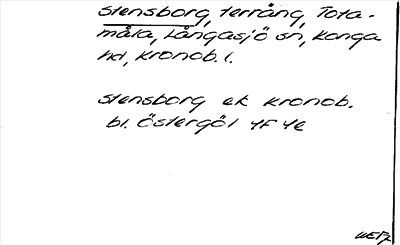 Stensborg, terräng, Tota-
måla, Långasjö sn, Konga
hd, Kronob. l.
Stensborg ek Kronob.
bl. Östergöl 4F 4e